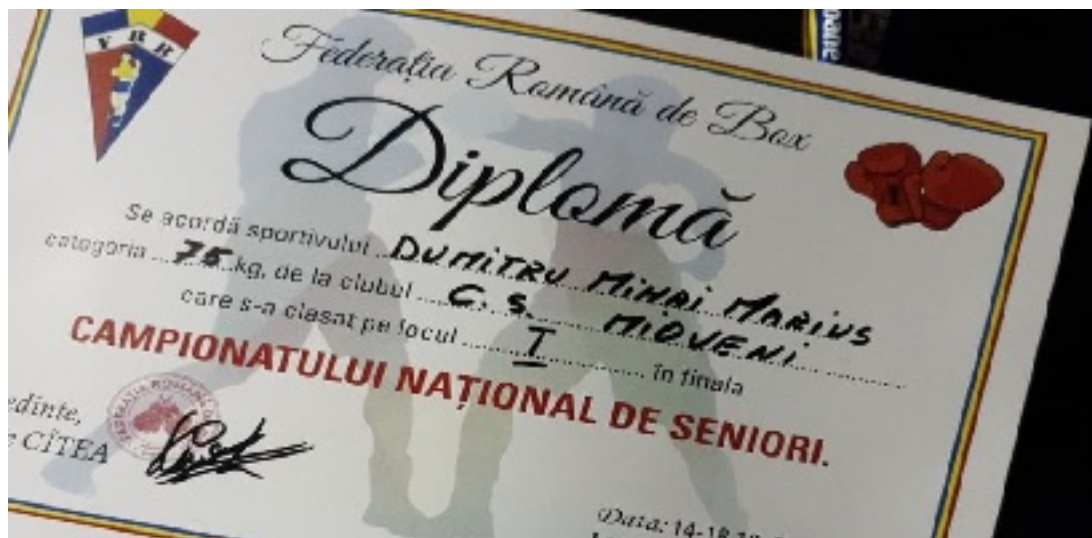 FRB
Federația Română de Box
Diplomă
Se acordă sportivului DUMITRU MIHAI MARIUS
categoria 75 kg, de la clubul C. S. MIOVENI
care s-a clasat pe locul I în finala
CAMPIONATULUI NAȚIONAL DE SENIORI.
edinte,
e CÎTEA
FEDERAȚIA ROMÂNĂ
Data: 14-18